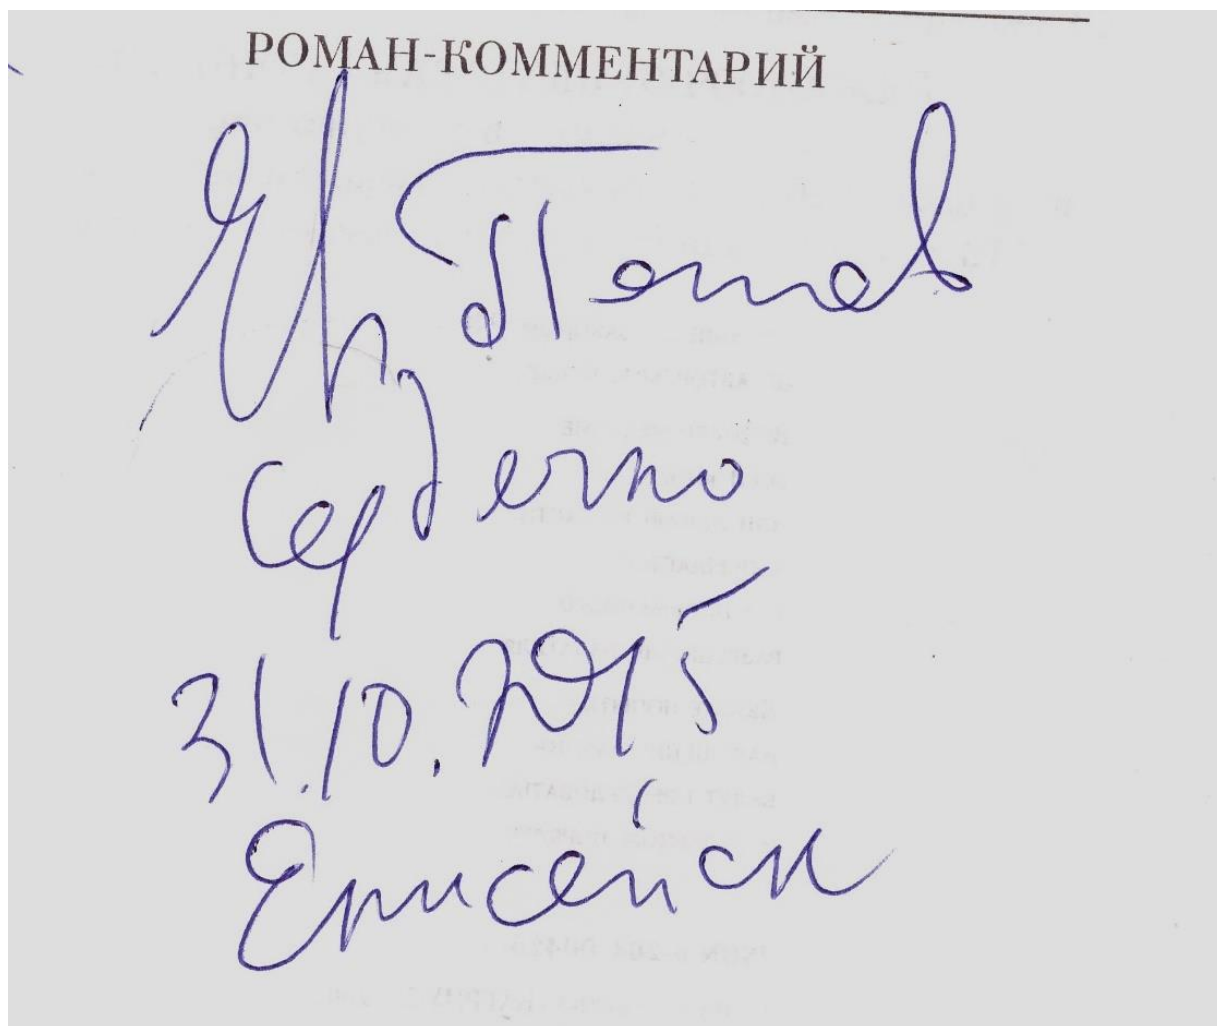 РОМАН-КОММЕНТАРИЙ
Евг Попов
сердечно
31.10.2015
Енисейск